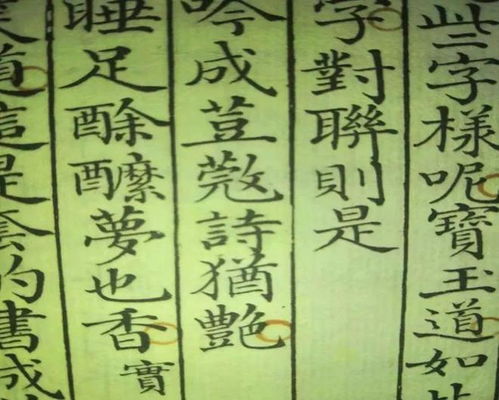 些字樣呢寶玉道如
字對聯則是
吟成荳蔻詩猶艷
睡足酴醾夢也香實
道這是套的書成